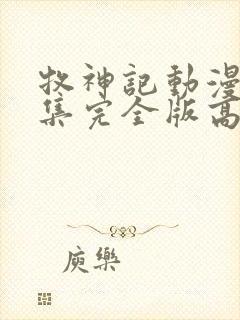 牧神記動漫
集完全版高
庾樂